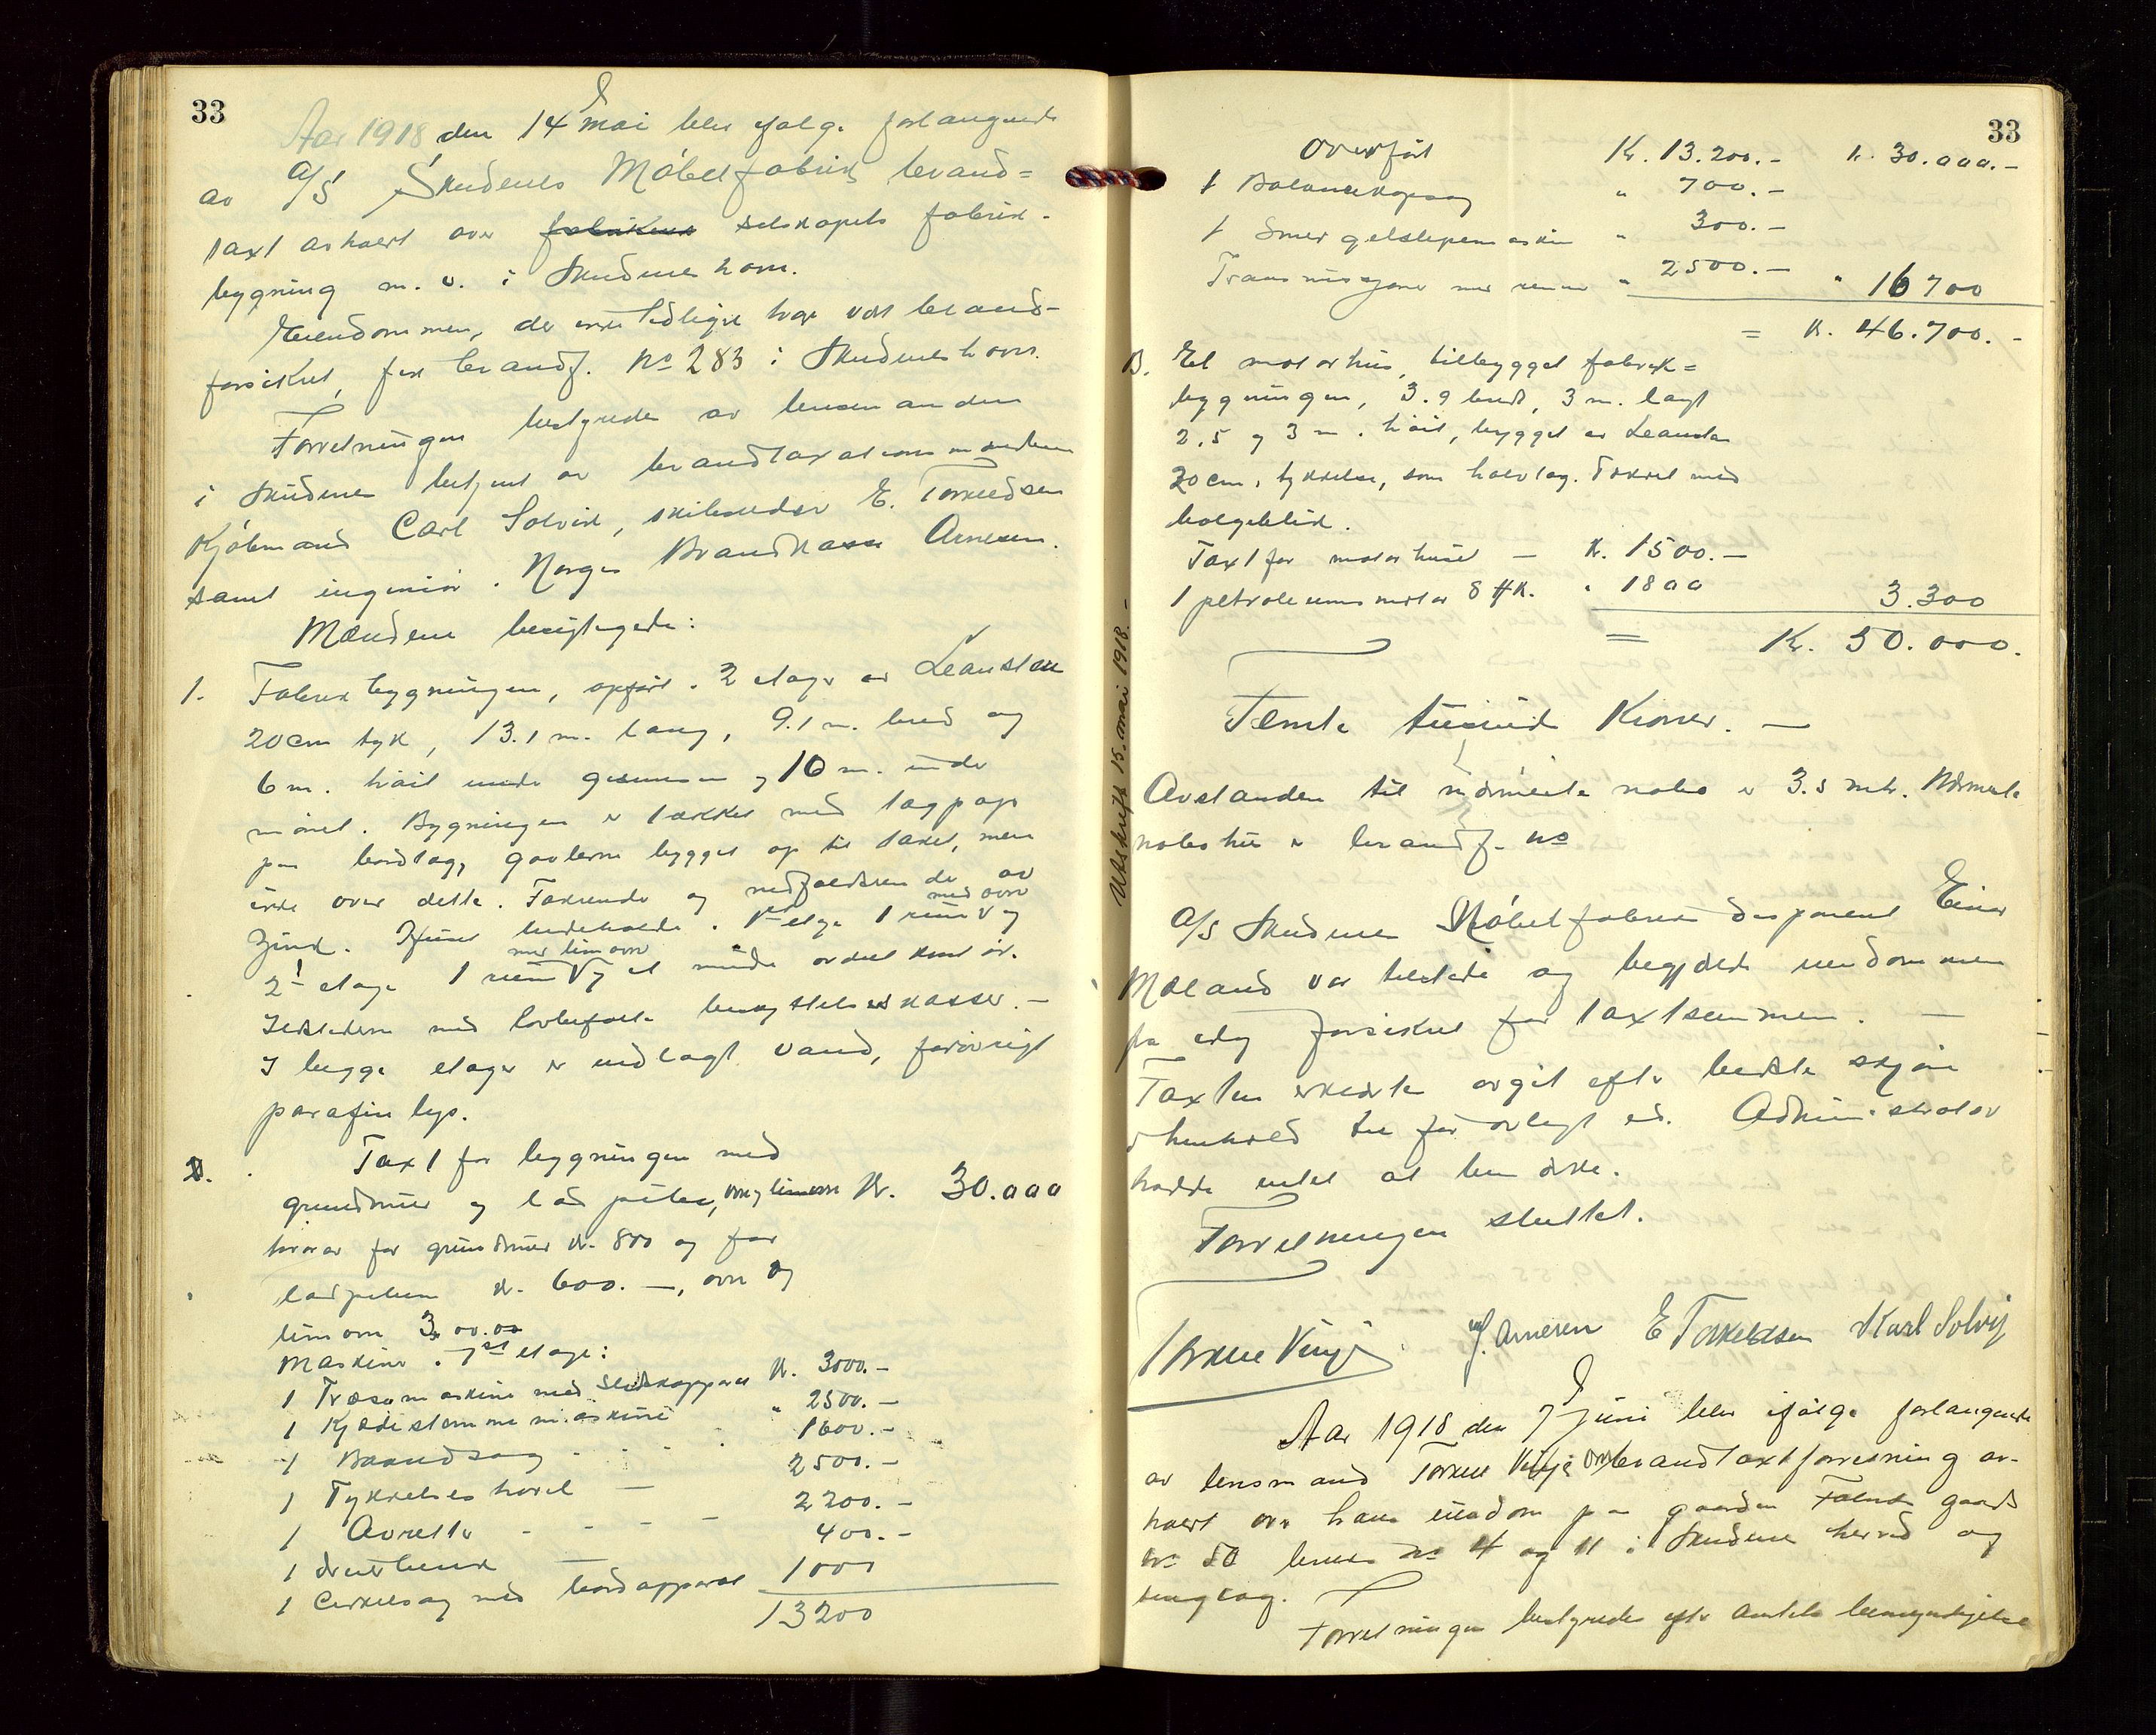 33
Aar 1918 den 14 mai blev ifølge forlangende
av A/S Skudenes Möbelfabrik brand=
taxt avholdt over fabrikens selskapets fabrik-
bygning m. v. i Skudeneshavn.
Eiendommen, der ikke tidligere har vært brand-
forsikret, fik brandf. No 283 i Skudeneshavn.
Forretningen bestyredes av lensmanden
i Skudenes betjent av brandtaxationsmændene
Kjøbmand Carl Solvik, skibsreder E. Torkeldsen
samt ingeniør i Norges Brandkasse Arnesen.
Mændene besigtigede:
1. Fabrikbygningen, opført i 2 etager av Leansten
20 cm tyk, 13.1 m. lang, 9.1 m. bred og
6 m. høit under gesimsen og 10 m. under
mønet. Bygningen er tækket med tagpap
paa bordtag, gavlerne bygget op til taket, men
ikke over dette. Takrender og nedfaldsrender av
Zink. Huset indeholder i 1ste etage 1 rum med ovn og
2! etage 1 rum med limovn og et mindre avdelt kontor.
Ildstederne med lovbefalte beskyttelseskasser. -
I begge etager er indlagt vand, forøvrigt
parafin lys.
Taxt for bygningen med
grundmur og lad piber, ovn og limovn Kr. 30.000
hvorav for grundmur Kr. 800 og for
ladpiben Kr. 600.-, ovn og
limovn 300.00
Maskiner i 1ste etage:
1 Træsømaskine med Sledskapparat Kr. 3000.-
1 Kjædestemmemaskine " 2500.-
1 Baandsag 1600.-
1 Tykkelseshøvel 2500.-
1 Avretter - - - - 2200.-
1 dreiebenk 400.-
1 Cirkelsag med bordapparat 1000
13200
33
Overført Kr. 13.200.- Kr. 30.000.-
1 Balancekapsag " 700.-
1 Smergelslipemaskin " 300.-
Transmisjoner med remmer " 2500.- " 16700
= Kr. 46.700.-
B. Et motorhus, tilbygget fabrik=
bygningen, 3.9 bredt, 3 m. langt
2.5 og 3 m. høit, bygget av Leansten
20 cm. tykkelse, som halvtag. Tækket med
bølgeblik.
Taxt for motorhuset - Kr. 1500.-
1 petroleumsmotor 8 HK. " 1800 3.300
= Kr. 50.000.
Femti tusind Kroner. -
Avstanden til nærmeste nabo er 3.5 mtr. Nærmeste
nabohus er brandf. No
A/S Skudenes Möbelfabrik disponent Einar
Mæland var tilstede og begjærte eiendommen
paa eieg forsikret for taxtsummen. -
Taxten erklærtes avgit efter bedste skjøn
i henhold til før avlagt ed. Administrator
hadde intet at bemærke.
Forretningen sluttet.
Torkel Vinje. J. Arnesen E Torkeldsen Karl Solvig
Aar 1918 den 7 juni blev ifølge forlangende
av lensmand Torkel Vinje brandtaxtforretning av-
holdt over hans eiendom paa gaarden Falnes gaards
nr. 50 bruks nr. 4 og 11 i Skudenes herred og
tinglag.
Forretningen bestyredes efter amtets bemyndigelse
Utskrift 15. mai 1918. -